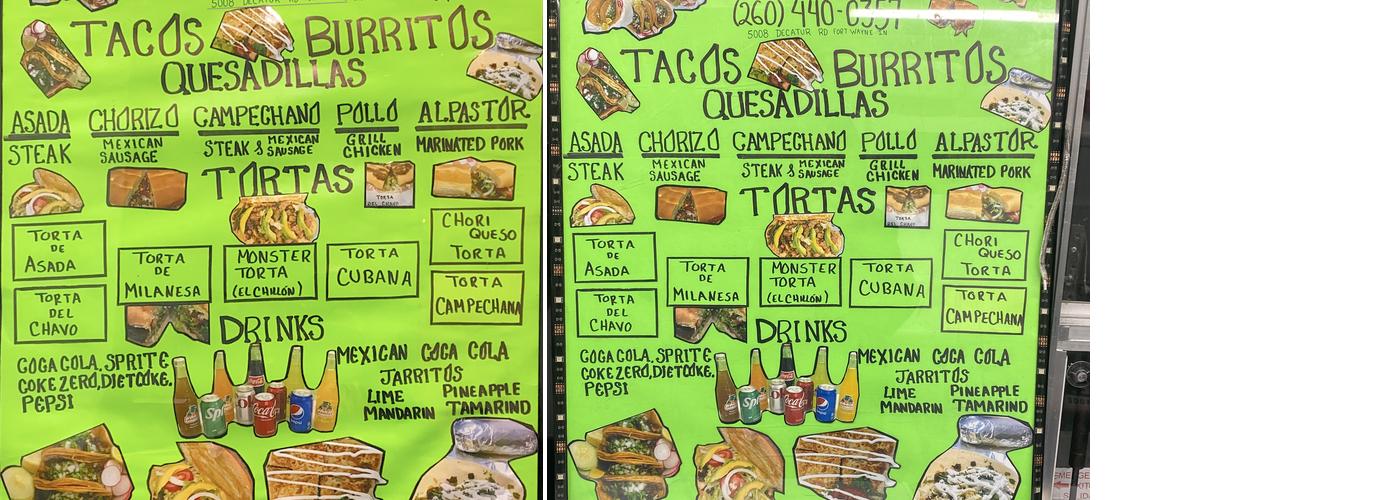 5008 DECATUR RD
TACOS BURRITOS
QUESADILLAS
ASADA CHORIZO CAMPECHANO POLLO ALPASTOR
STEAK MEXICAN SAUSAGE STEAK & MEXICAN SAUSAGE GRILL CHICKEN MARINATED PORK
TORTAS
TORTA DEL CHAVO
TORTA DE ASADA
TORTA DE MILANESA
MONSTER TORTA (EL CHILLÓN)
TORTA CUBANA
CHORI QUESO TORTA
TORTA DEL CHAVO
TORTA CAMPECHANA
DRINKS
COCA COLA, SPRITE
COKE ZERO, DIET COKE.
PEPSI
MEXICAN COCA COLA
JARRITOS
LIME PINEAPPLE
MANDARIN TAMARIND
(260) 440-0357
5008 DECATUR RD FORT WAYNE IN
TACOS BURRITOS
QUESADILLAS
ASADA CHORIZO CAMPECHANO POLLO ALPASTOR
STEAK MEXICAN SAUSAGE STEAK & MEXICAN SAUSAGE GRILL CHICKEN MARINATED PORK
TORTAS
TORTA DEL CHAVO
TORTA DE ASADA
TORTA DE MILANESA
MONSTER TORTA (EL CHILLÓN)
TORTA CUBANA
CHORI QUESO TORTA
TORTA DEL CHAVO
TORTA CAMPECHANA
DRINKS
COCA COLA, SPRITE
COKE ZERO, DIET COKE.
PEPSI
MEXICAN COCA COLA
JARRITOS
LIME PINEAPPLE
MANDARIN TAMARIND